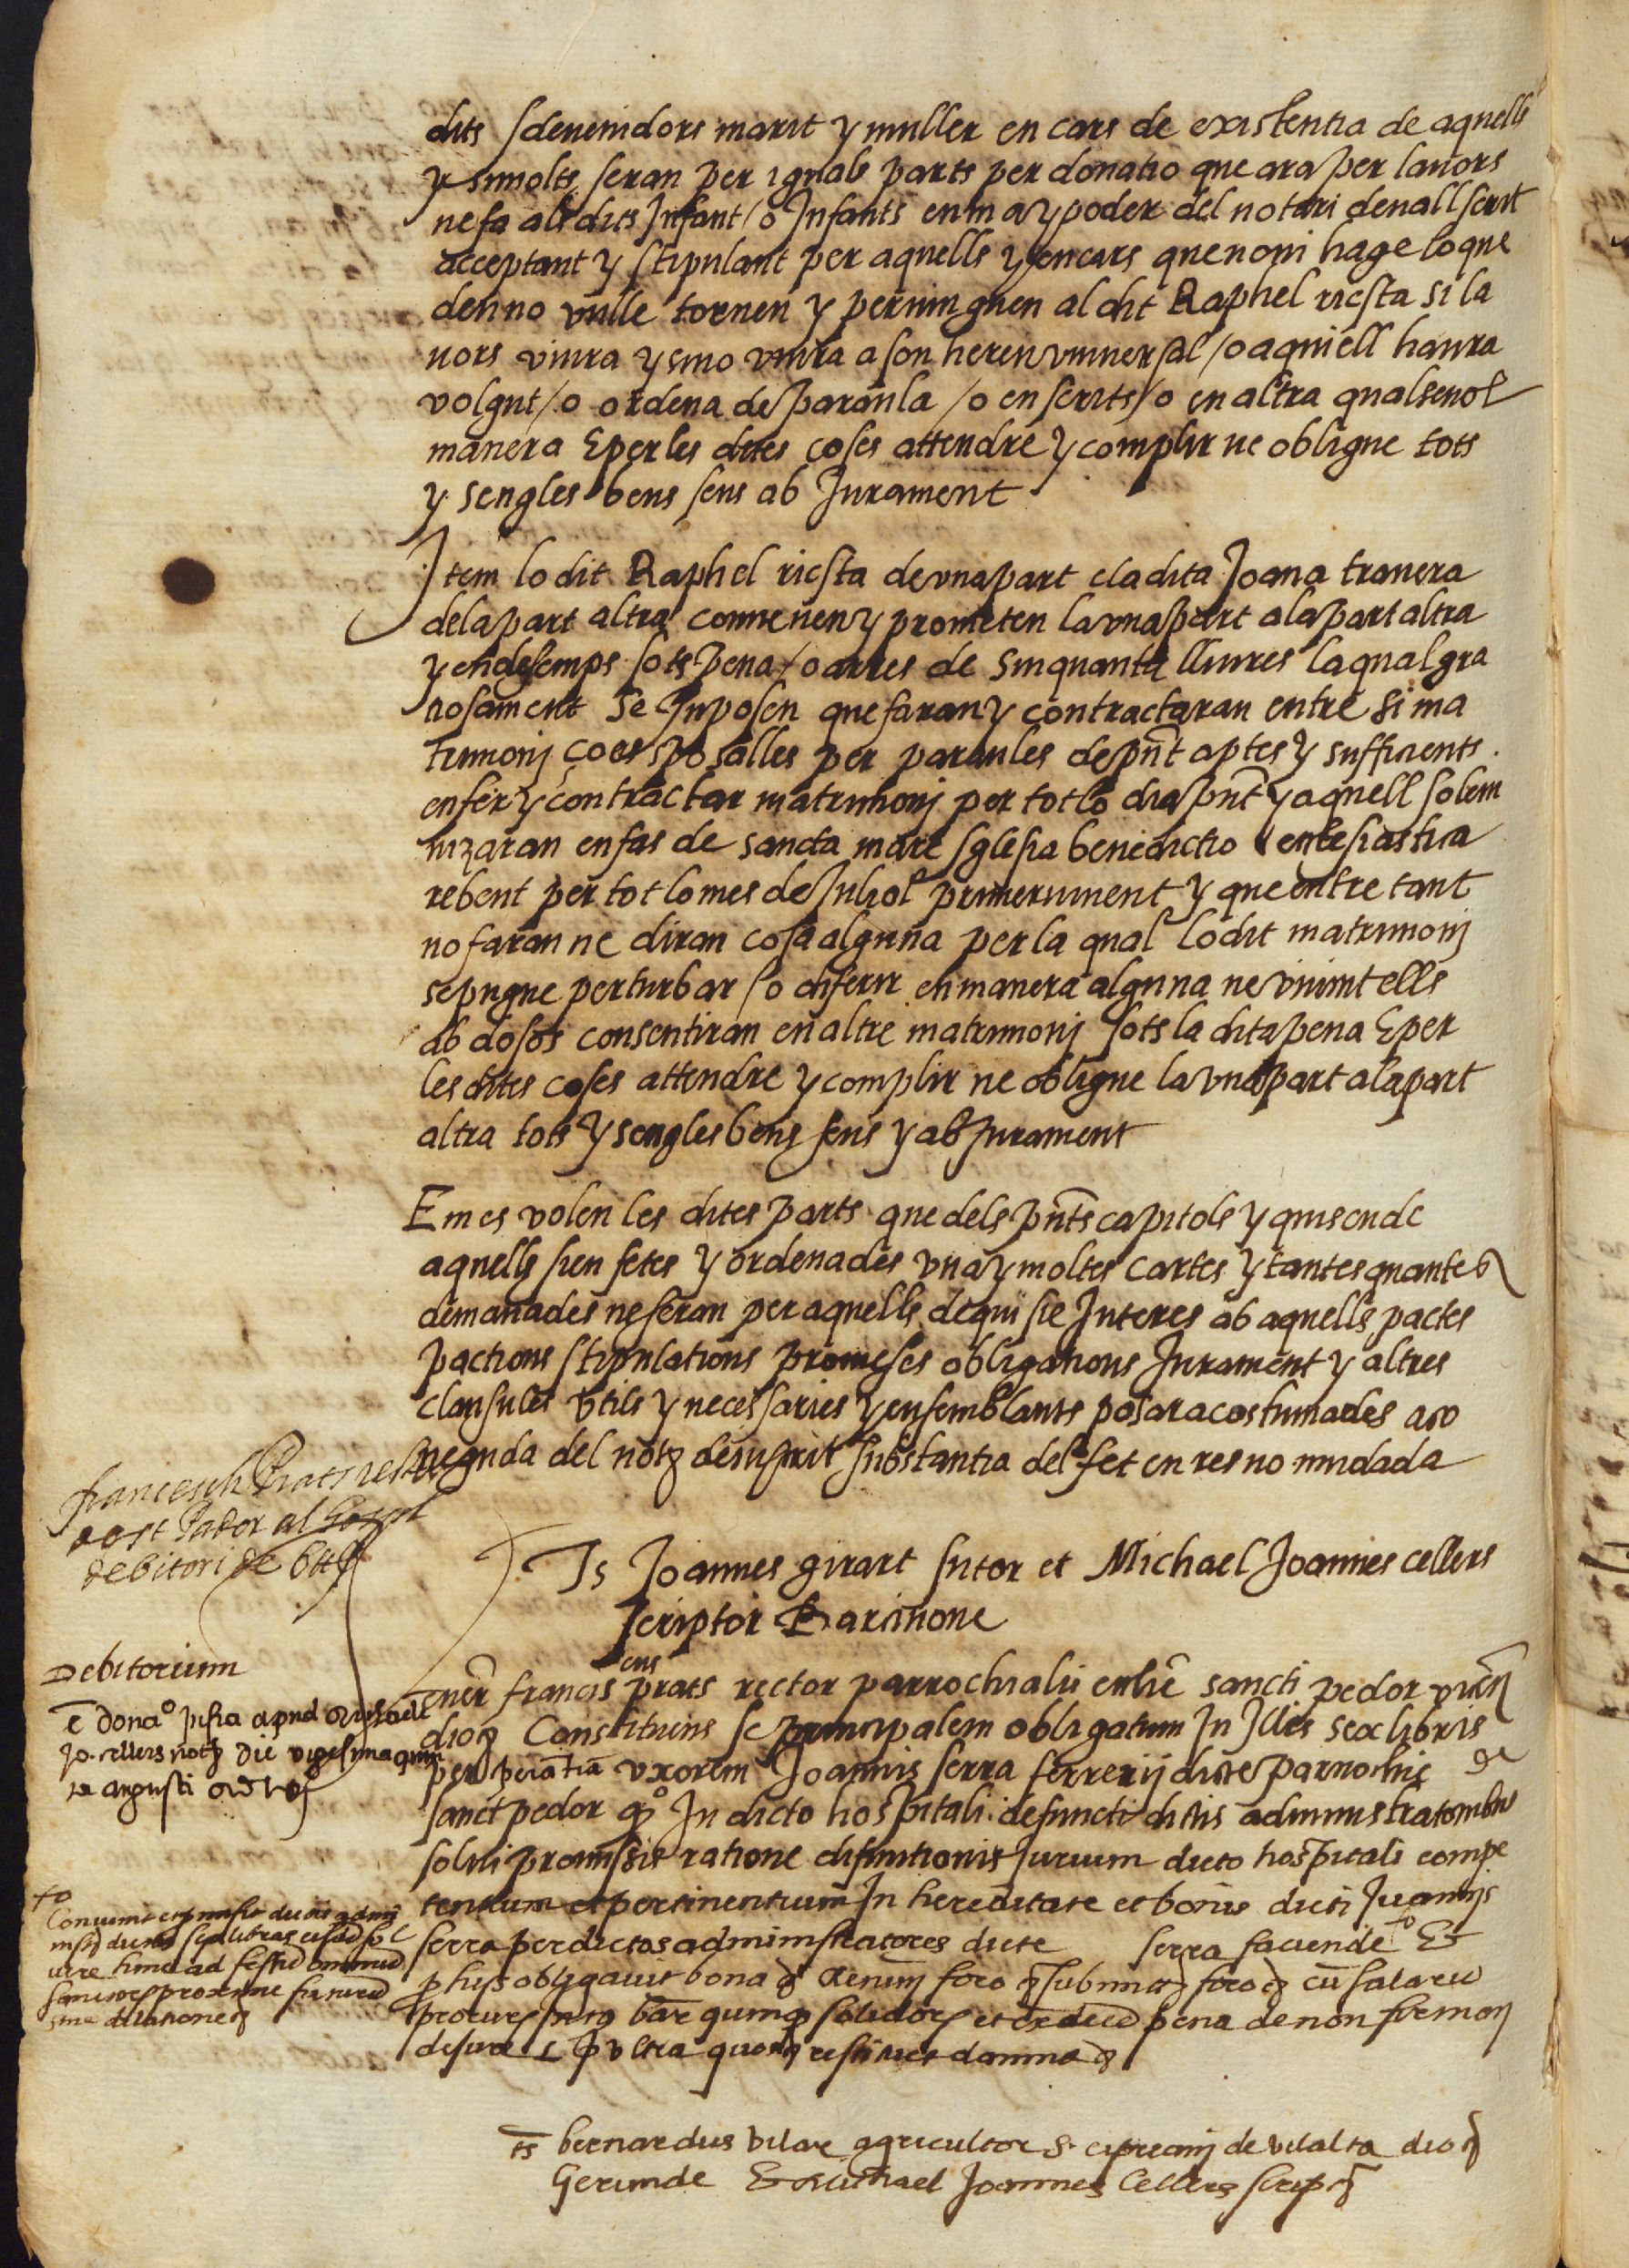 dits sdevenidors marit y muller en cars de existentia de aquells
y si molts seran per iguals parts per donatio que ara per lavors
ne fa als dits Infant /o Infants en ma y poder del notari devall scrit
acceptant y stipulant per aquells y en cars que noni hage lo que
deu no vulle tornen y pervinguen al dit Raphel riesta si la
vors viura y sino viura a son hereu universal /o a qui ell haura
volgut /o ordenã de paraula /o en scrits /o en altra qualsevol
manera E per les dites coses attendre y complir ne obligue tots
y sengles bens seus ab Jurament
Item lo dit Raphel riesta de una part e la dita Joana travera
de la part altra convenen y prometen la una part a la part altra
y endesemps sots pena /o arres de sinquanta lliures la qual gra
tiosament se Inposen que faran y contractaran entre si ma
trimonj ço es sposalles per paraules de pñt aptes y suffitients
en fer y contractar matrimonj per tot lo dia pñt y aquell solem
nizaran en fas de sancta mare sglesia benedictio ecclesiastica
rebent per tot lo mes de Juliol primervinent y que entretant
no faran ne diran cosa alguna per la qual lo dit matrimonj
se pugue perturbar /o diferir en manera alguna ne vivint ells
ab dosos consentiran en altre matrimonj sots la dita pena E per
les dites coses attendre y complir ne obligue la una part a la part
altra tots y sengles bens seus y ab Jurament
E mes volen les dites parts que dels pñts capitols y quiscu de
aquells sien fetes y ordenades una y moltes cartes y tantes quantes
demanades ne seran per aquells de qui sie Interes ab aquells pactes
pactions stipulations promeses obligations Jurament y altres
clausules utils y necessaries y en semblants posar acostumades a co
neguda del notʒ desusrit substantia del fet en res no mudada
francesch Prats
debitori de
Ts Joannes girart sutor et Michael Joannes cellers
scriptor Barcinone
Debitorium
ẽ donaº
Jo. cellers notʒ die vigesima quin
ta augusti
ener francˢ prats rector parrochialis ecclie sancti pedor vicen̄
dioʒ Constituens se principalem obligatum In Illis sex libris
per uxorem Joannis serra ferrerij dicte parrochie de
sanct pedor qº In dicto hospitali defuncti dictis administratoribus
solvi promissis ratione difinitionis Jurium dicto hospitali compe
tentium et pertinentium In hereditate et bonis dicti Juannis
serra per dictos administratores dicte serra faciende Et
p hijs obligavit bona foro submitt foro cũ salario
bar quinq solidor pena de non firman
ultra quos restituet damna
Convenit et promisit dictis admi
sex libras
ad festũ omniũ
sanctor proxime futurũ
sine dilatione
Ts bernardus vilar agricultor S. cipriani de vilalta dioʒ
Gerunde Et Michael Joannes Cellers scrip